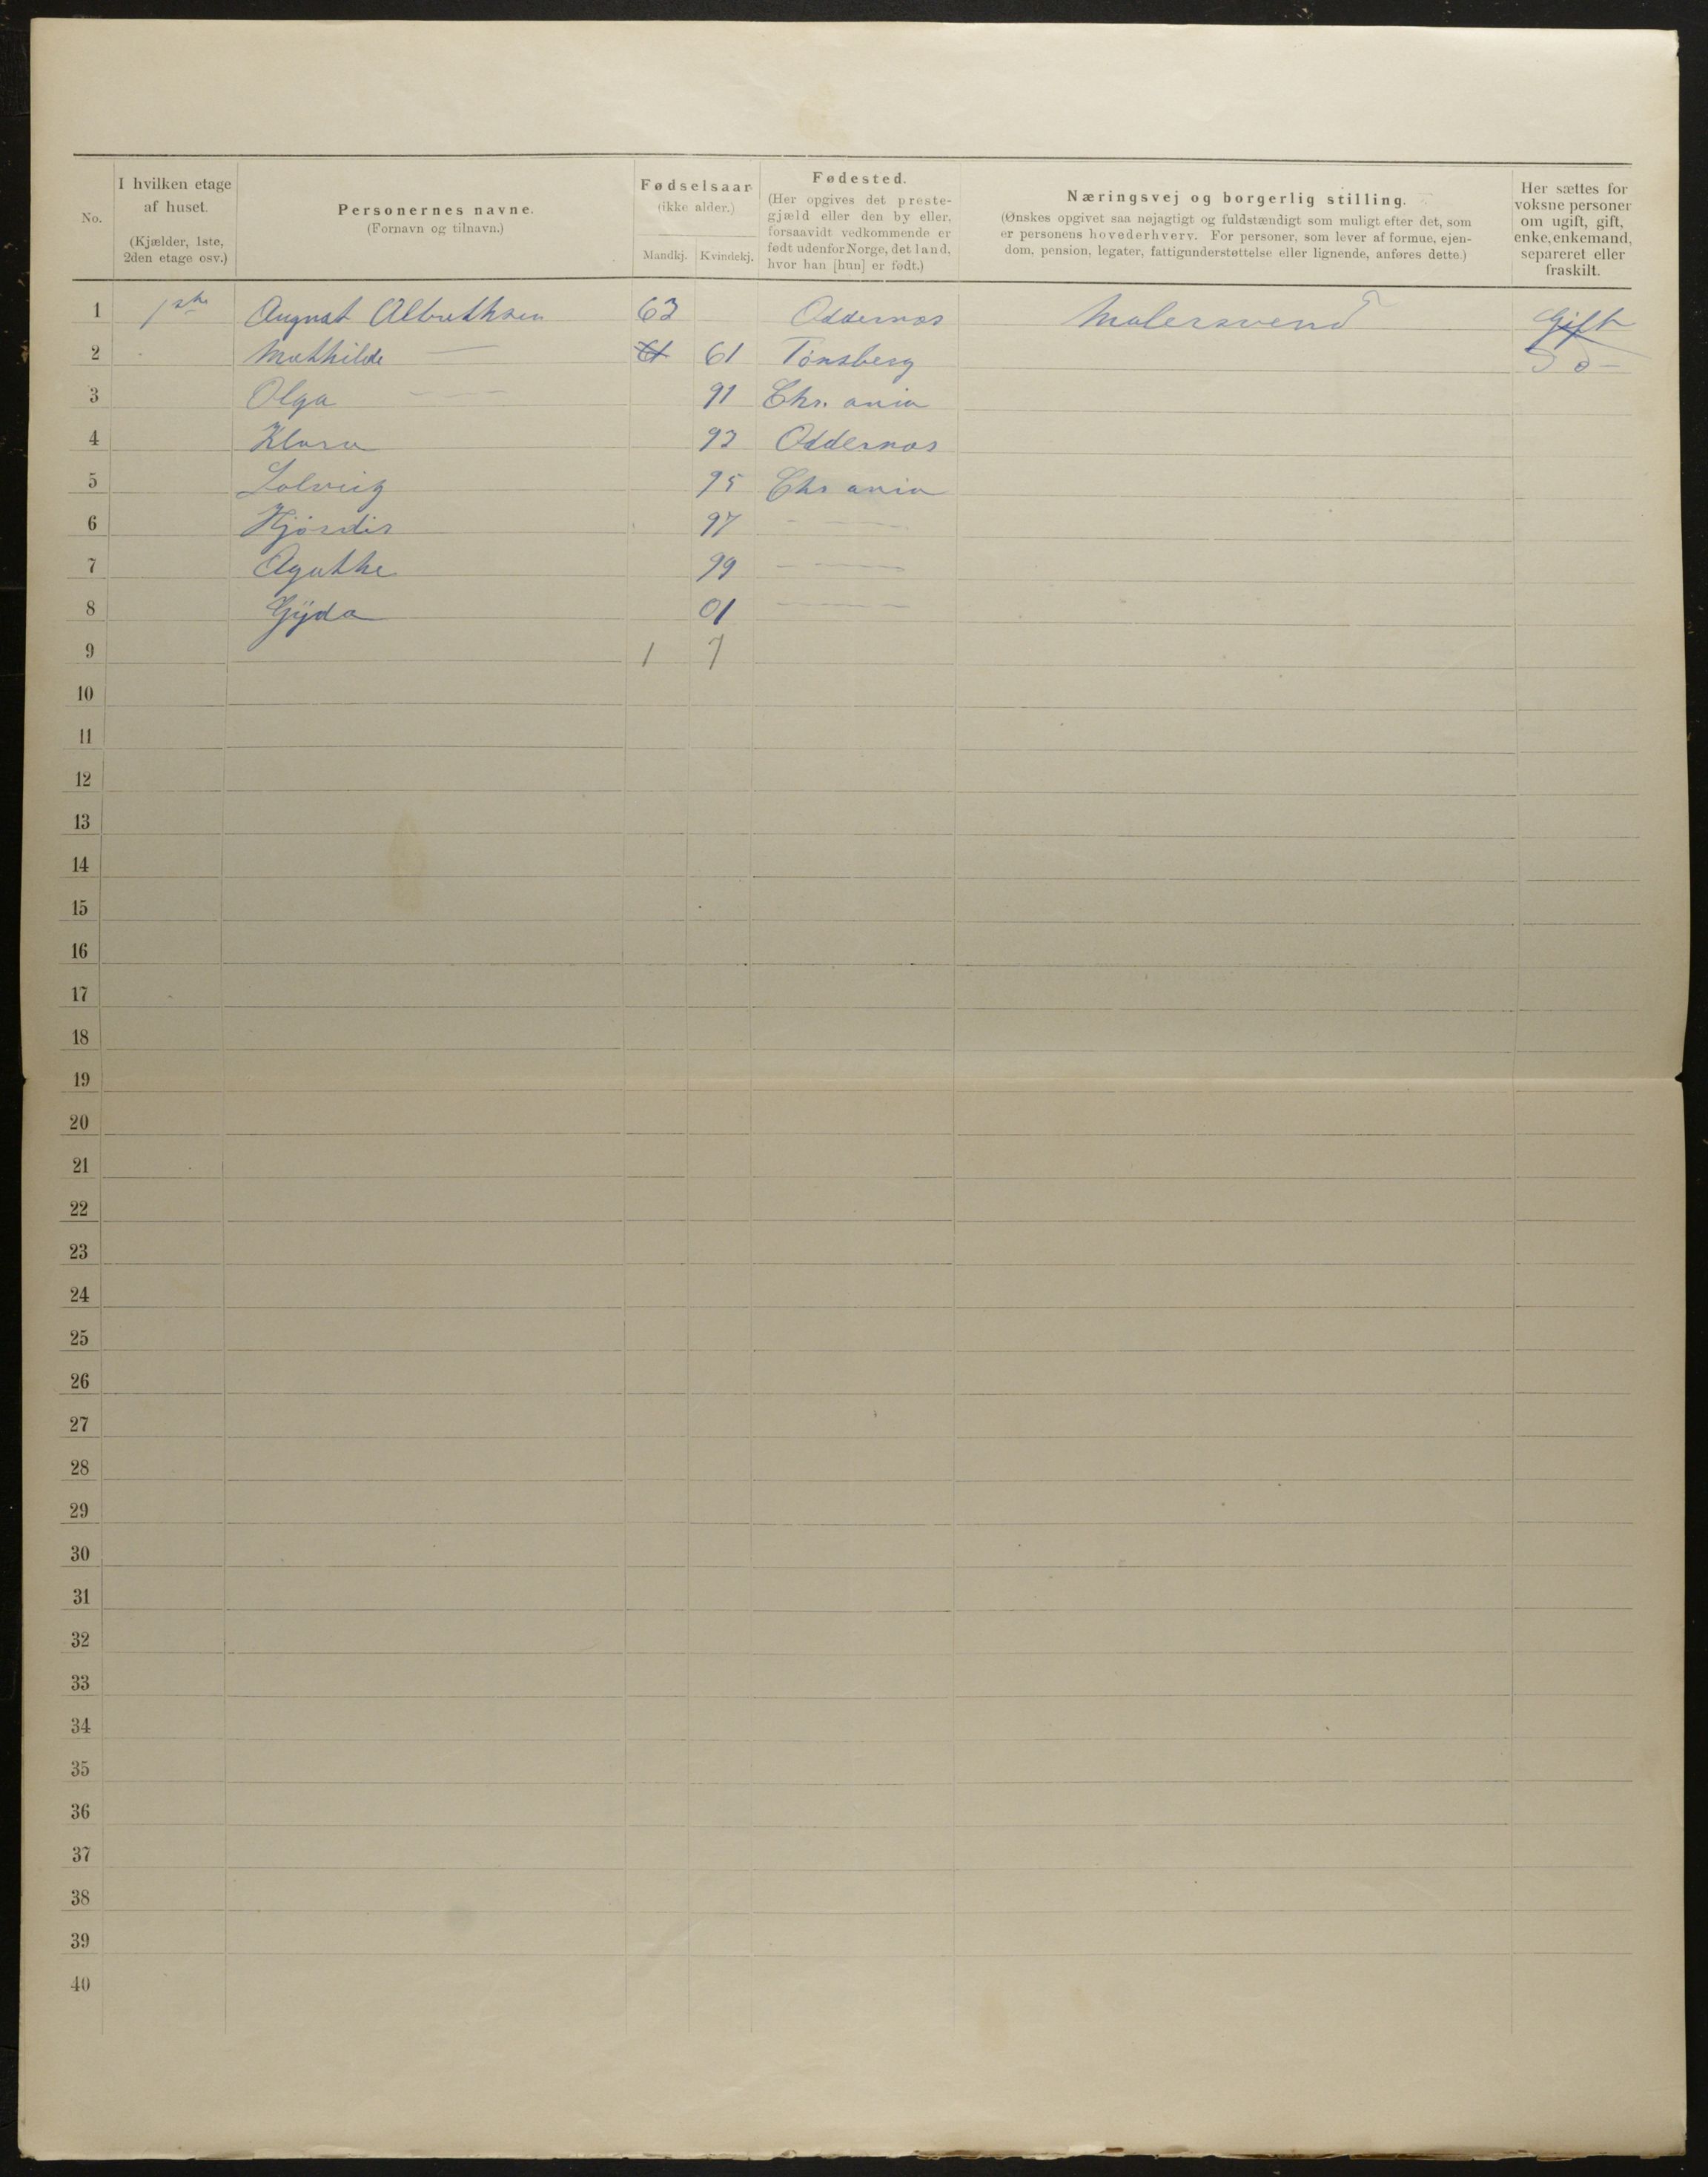 No.
I hvilken etage af huset.
(Kjælder, 1ste, 2den etage osv.)
Personernes navne.
(Fornavn og tilnavn.)
Fødselsaar
(ikke alder.)
Mandkj. Kvindekj.
Fødested.
(Her opgives det preste-
gjæld eller den by eller,
forsaavidt vedkommende er
født udenfor Norge, det land,
hvor han [hun] er født.)
Næringsvej og borgerlig stilling.
(Ønskes opgivet saa nøjagtigt og fuldstændigt som muligt efter det, som
er personens hovederhverv. For personer, som lever af formue, ejen-
dom, pension, legater, fattigunderstøttelse eller lignende, anføres dette.)
Her sættes for
voksne personer
om ugift, gift,
enke, enkemand,
separeret eller
fraskilt.
1 1ste August Albrethsen 63 Oddernes Malersvend Gift
2 Mathilde — 61 61 Tønsberg Do -
3 Olga — 91 Chr. ania
4 Klara 93 Oddernes
5 Solveig 95 Chr ania
6 Hjördis 97 — — —
7 Agathe 99 — — —
8 Gÿda 01 — — —
9 1 7
10
11
12
13
14
15
16
17
18
19
20
21
22
23
24
25
26
27
28
29
30
31
32
33
34
35
36
37
38
39
40